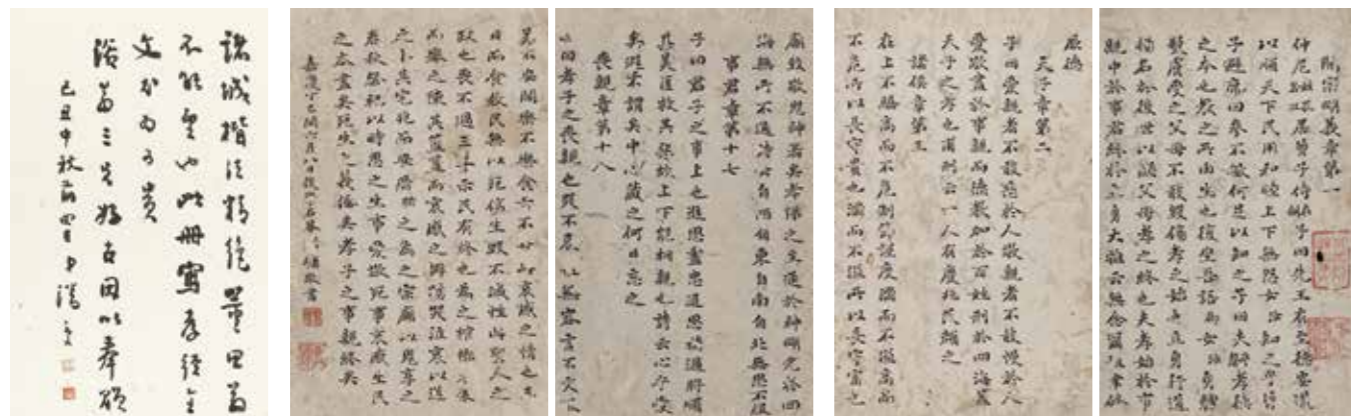 開宗明義章第一
仲尼居曾子侍子曰先王有至德要道
以順天下民用和睦上下無怨女知之乎曾
子避席曰參不敏何足以知之子曰夫孝德
之本也教之所由生也復坐吾語女身體
髮膚受之父母不敢毀傷孝之始也立身行道
揚名於後世以顯父母孝之終也夫孝始於事
親中於事君終於立身大雅云無念爾祖聿脩
厥德
天子章第二
子曰愛親者不敢惡於人敬親者不敢慢於人
愛敬盡於事親而德教加於百姓刑於四海蓋
天子之孝也甫刑云一人有慶兆民賴之
諸侯章第三
在上不驕高而不危制節謹度滿而不溢高而
不危所以長守貴也滿而不溢所以長守富也
廟致敬鬼神著矣孝悌之至通於神明光於四
海無所不通詩云自西自東自南自北無思不服
事君章第十七
子曰君子之事上也進思盡忠退思補過將順
其美匡救其惡故上下能相親也詩云心乎愛
矣遐不謂矣中心藏之何日忘之
喪親章第十八
子曰孝子之喪親也哭不哀禮無容言不文服
美不安聞樂不樂食旨不甘此哀慼之情也三
日而食教民無以死傷生毀不滅性此聖人之
政也喪不過三年示民有終也為之棺椁衣衾
而舉之陳其簠簋而哀慼之擗踊哭泣哀以送
之卜其宅兆而安厝之為之宗廟以鬼享之
春秋祭祀以時思之生事愛敬死事哀慼生民
之本盡矣死生之義備矣孝子之事親終矣
嘉慶丁巳閏六月八日 敬書
諸城楷法精絕
不能 此冊寫孝經全
文 可貴
三兄好古因以奉
己丑中秋前四日